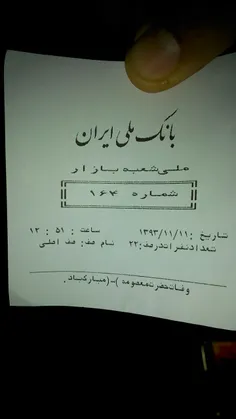 بانک ملی ایران
ملی شعبه بازار
شماره ۱۶۴
تاریخ :۱۳۹۳/۱۱/۱۱ ساعت : ۵۱ : ۱۲
تعداد نفرات در صف:۲۲ نام صف: صف اصلی
وفات حضرت معصومه )-(مبارکباد.